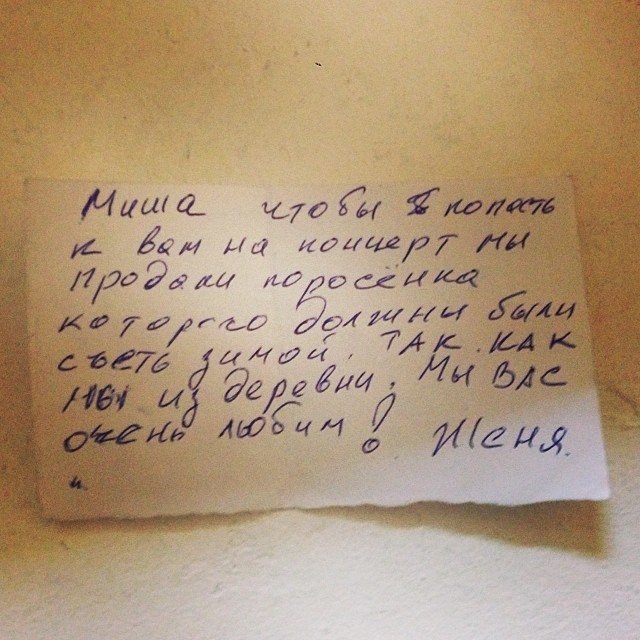 Миша чтобы попасть
к вам на концерт мы
продали поросёнка
которого должны были
съесть зимой. ТАК КАК
мы из деревни. Мы ВАС
очень любим! Женя.